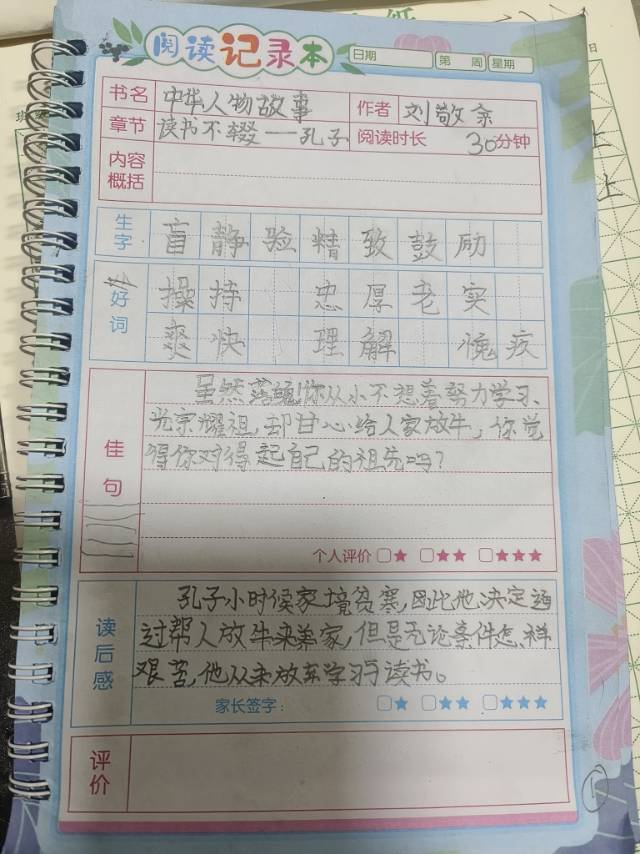 阅读记录本 日期 第 周 星期
书名 中华人物故事 作者 刘敬余
章节 读书不辍——孔子 阅读时长 30分钟
内容概括
生字 盲 静 验 精 致 鼓 励
好词 操持 忠厚老实
爽快 理解 愧疚
佳句
虽然落魄,你从小不想着努力学习、
光宗耀祖,却甘心给人家放牛,你觉
得你对得起自己的祖先吗?
个人评价 ★ ★★ ★★★
读后感
孔子小时候家境贫寒,因此他决定通
过帮人放牛来养家,但是无论条件怎么样
艰苦,他从未放弃学习与读书。
家长签字: ★ ★★ ★★★
评价
1